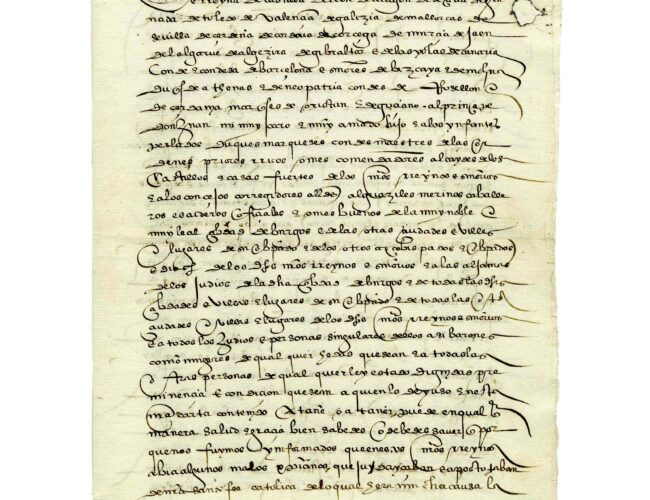 e Reyna de Castilla de leon de aragon de secilia de gra
nada de toledo de Valencia de galizia de mallorcas de
sevilla de cerdeña de cordova de corcega de murcia de jaen
del algarve de algezira de gibraltar e de las yslas de canaria
Conde e condesa de barcelona e señores de bizcaya e de molina
duqs de athenas e de neopatria condes de Rosellon
de cerdania marqueses de oristan e de gociano al principe
don Juan mi muy caro e muy amado hijo e a los ynfantes
perlados duques marqueses condes maestres de las or
denes priores rricos omes comendadores alcaydes de los
Castillos e casas fuertes de los nros rreynos e señorios
e a los concejos corregidores alldes alguaziles merinos cavalle
ros escuderos oficiales e omes buenos de la muy noble
e muy leal cibdad de burgos e de las otras ciudades e villas
e lugares de su obispado e de los otros arçobispados e obispados
e dioc de los dhs nros rreynos e señorios e a las aljamas
de los judios de la dha cibdad de burgos e de todas las dhs
cibdades e villas e lugares de su obispado e de todas las otras
ciudades e villas e lugares de los dhs nros rreynos e señorios
e a todos los Judios e personas singulares dellos asi barones
como mugeres de qual quier hedad que sean e a todas las
otras personas de qual quier ley estado dignidad pre
minencia e condicion que sean a quien lo de yuso en esta
nra carta contenido atañe o atañer puede en qualqr
manera salud e gracia bien sabedes o debedes saver q por
que nos fuymos ynformados que en estos nros rreynos
abia algunos malos xpianos que judayçaban e apostotaban
de nra santa fee catolica de lo qual hera mucha causa la